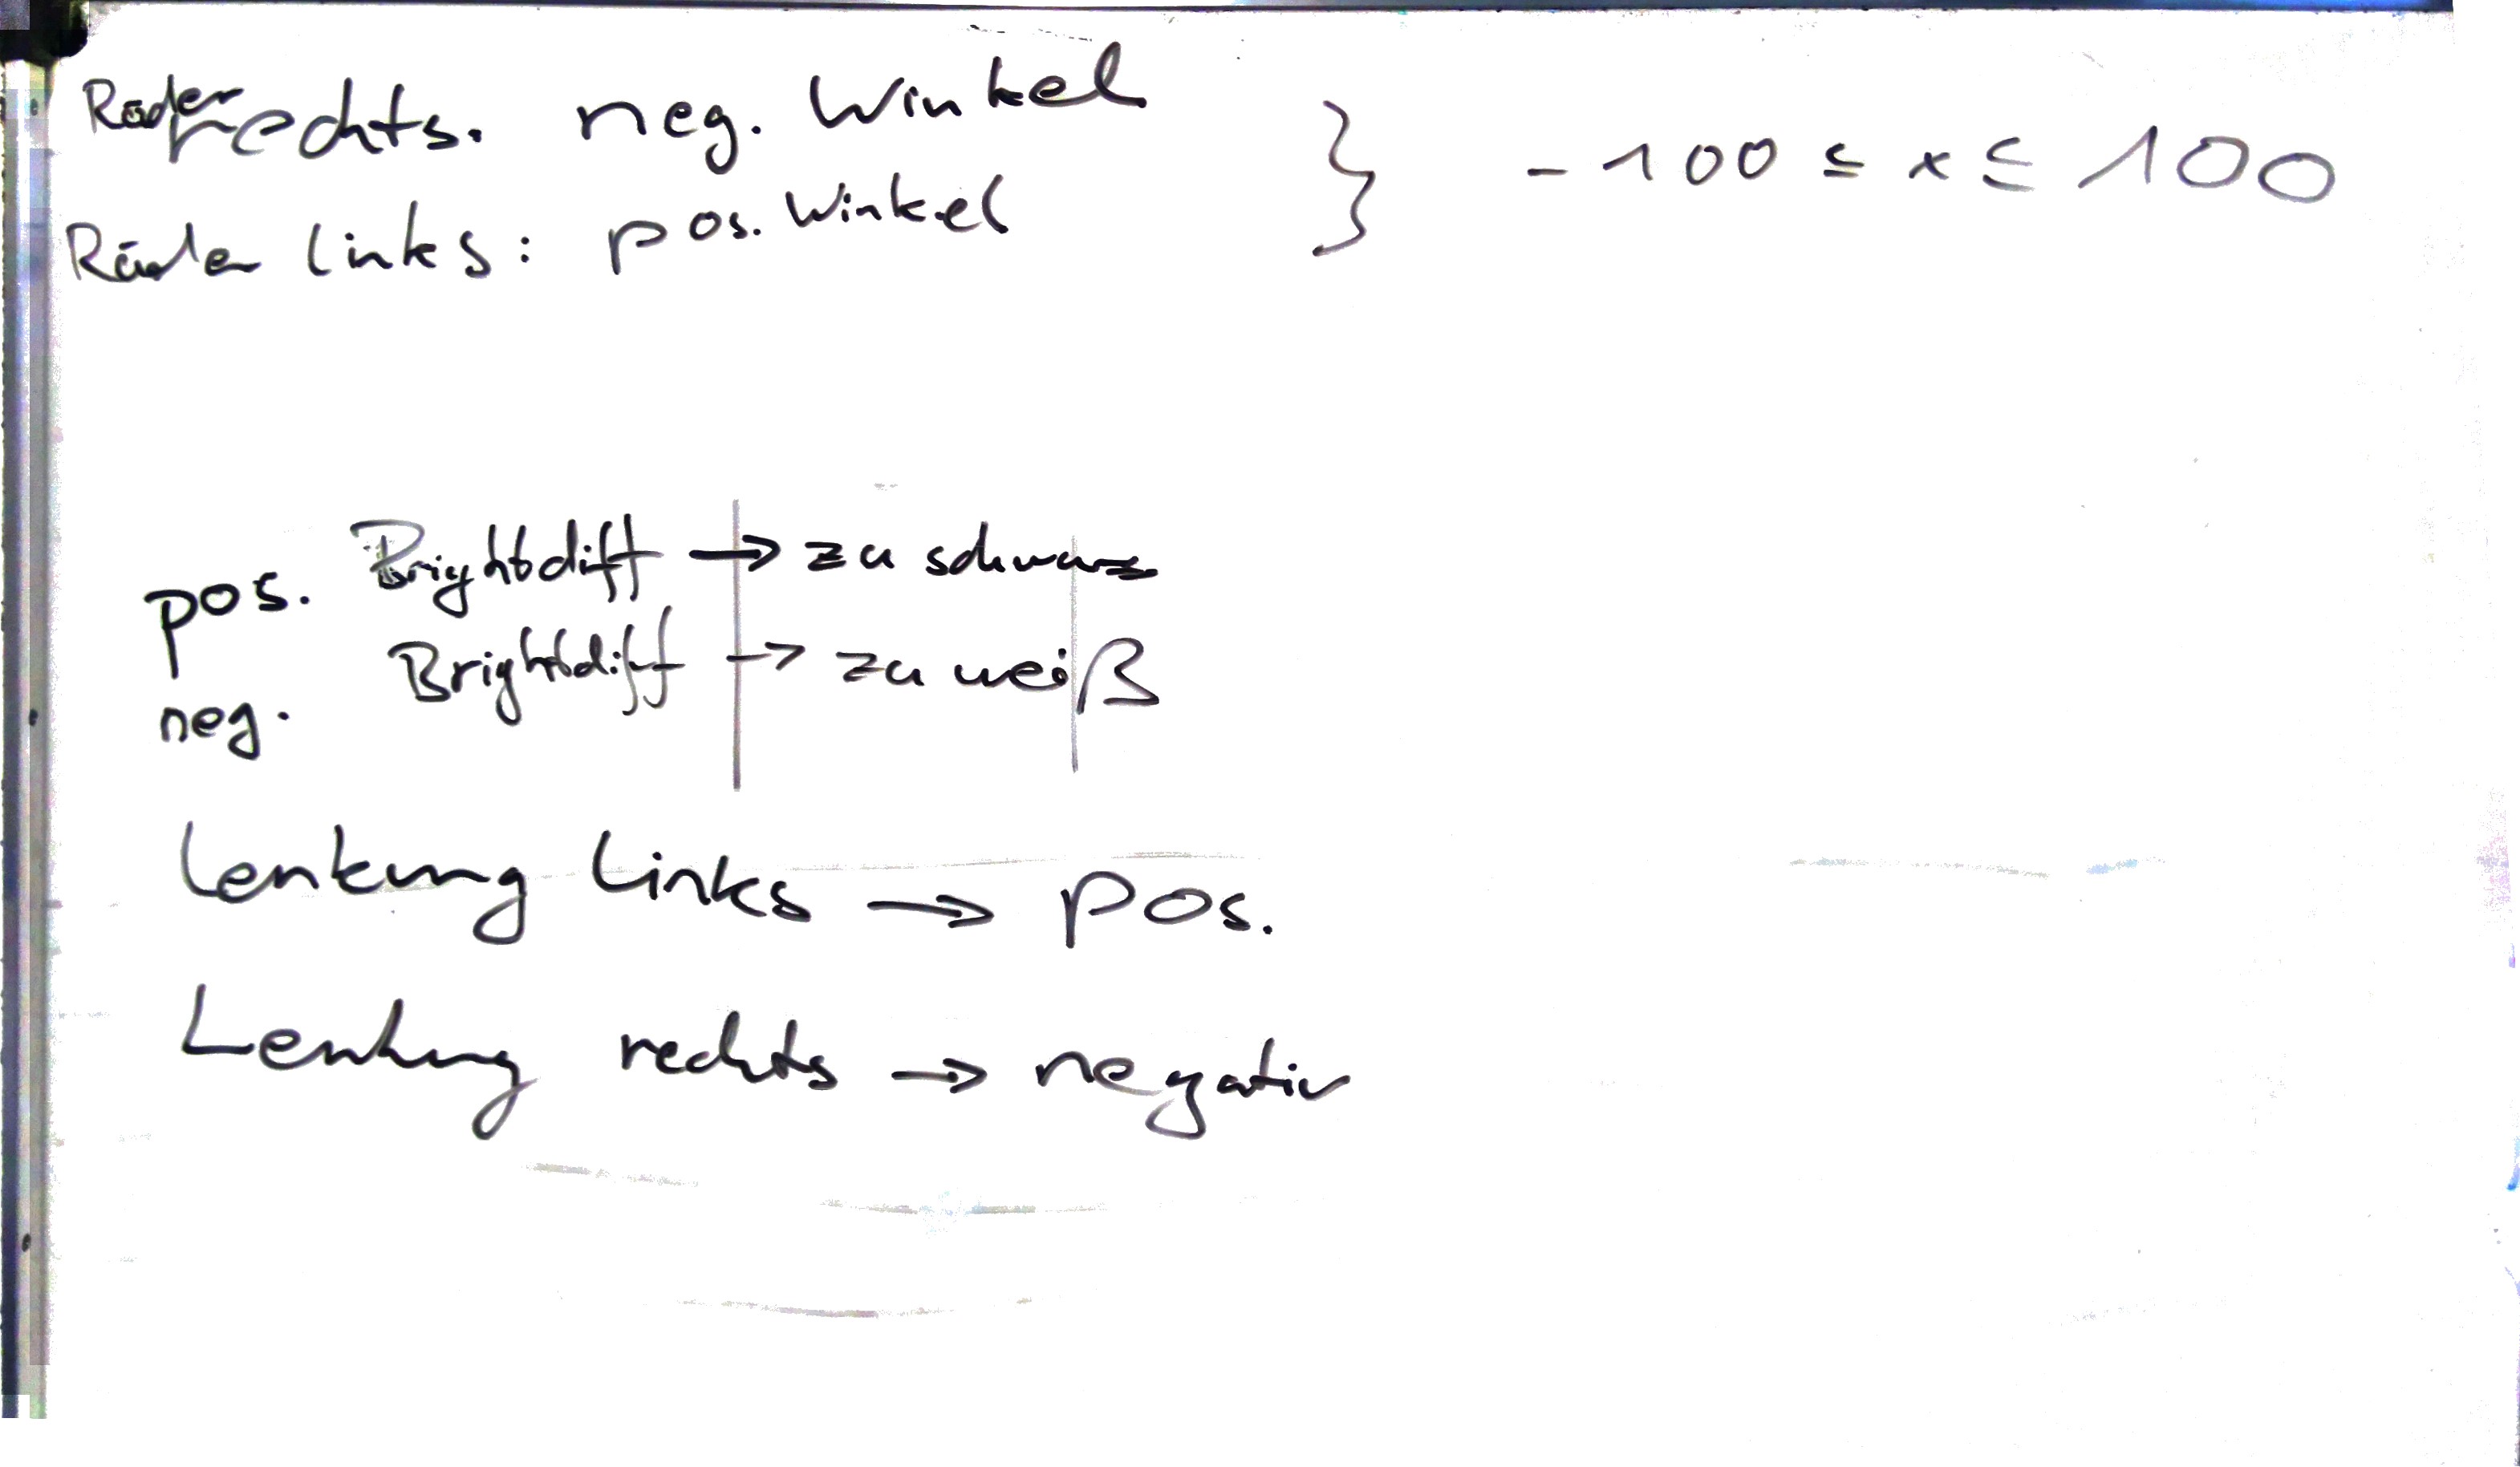 Räder rechts. neg. Winkel } -100 ≤ x ≤ 100
Räder links: pos. Winkel
pos. Brightdiff → zu schwarz
neg. Brightdiff → zu weiß
Lenkung Links → pos.
Lenkung rechts → negativ